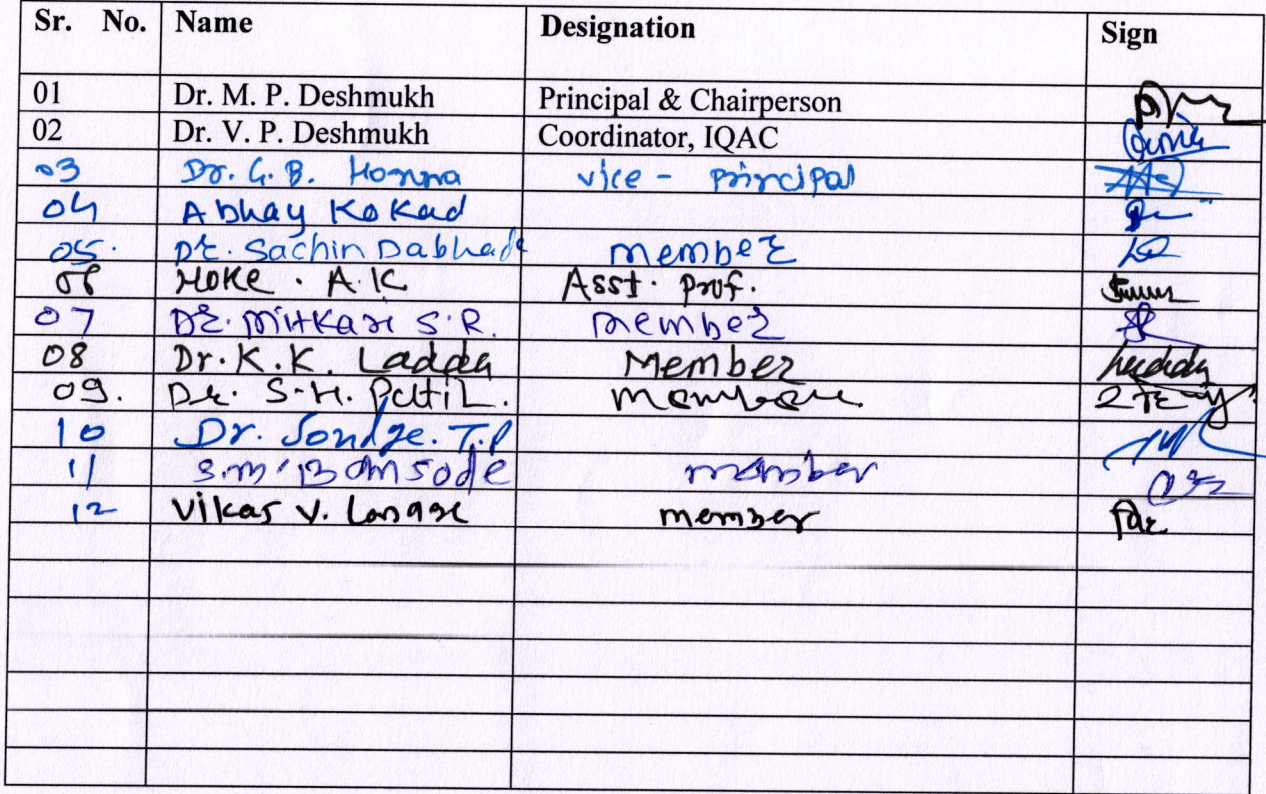 Sr. No. Name Designation Sign
01 Dr. M. P. Deshmukh Principal & Chairperson
02 Dr. V. P. Deshmukh Coordinator, IQAC
03 Dr. G. B. Honna vice - principal
04 Abhay Kokad
05. Dr. Sachin Dabhade member
06 Hoke . A.K Asst. prof.
07 Dr. Mitkari S.R. member
08 Dr. K.K. Ladda Member
09. Dr. S.H. Patil. member
10 Dr. Sondge. T.P
11 S.M. Bansode member
12 Vikas V. member